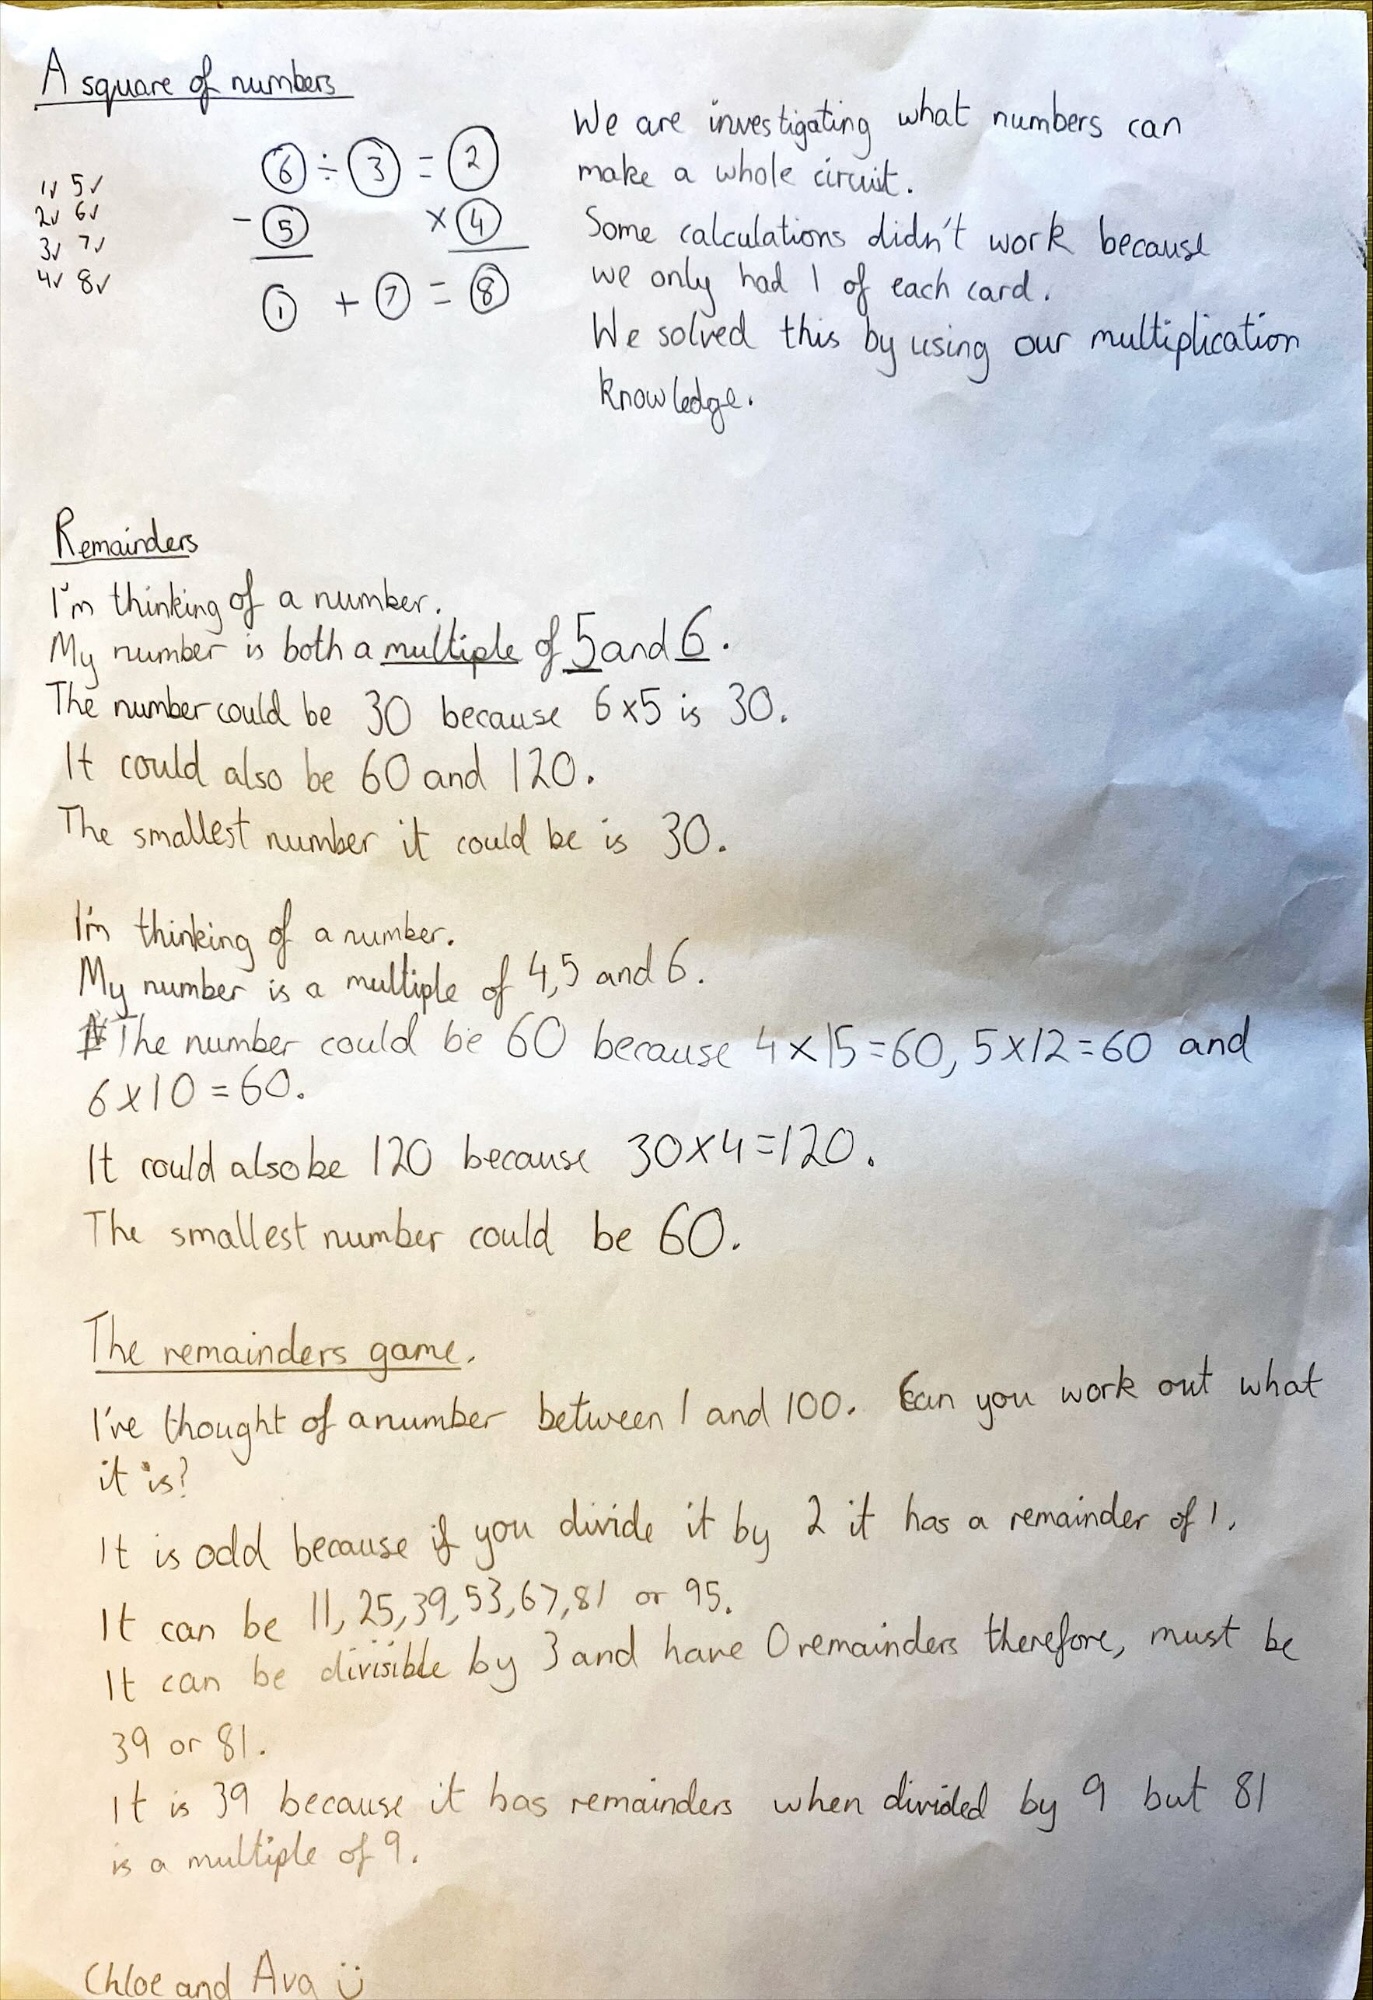 A square of numbers
1✓ 5✓
2✓ 6✓
3✓ 7✓
4✓ 8✓
6 ÷ 3 = 2
- 5 × 4
1 + 7 = 8
We are investigating what numbers can
make a whole circuit.
Some calculations didn't work because
we only had 1 of each card.
We solved this by using our multiplication
knowledge.
Remainders
I'm thinking of a number.
My number is both a multiple of 5 and 6.
The number could be 30 because 6x5 is 30.
It could also be 60 and 120.
The smallest number it could be is 30.
I'm thinking of a number.
My number is a multiple of 4,5 and 6.
The number could be 60 because 4x15=60, 5x12=60 and
6x10=60.
It could also be 120 because 30x4=120.
The smallest number could be 60.
The remainders game.
I've thought of a number between 1 and 100. Can you work out what
it is?
It is odd because if you divide it by 2 it has a remainder of 1.
It can be 11, 25, 39, 53, 67, 81 or 95.
It can be divisible by 3 and have 0 remainders therefore, must be
39 or 81.
It is 39 because it has remainders when divided by 9 but 81
is a multiple of 9.
Chloe and Ava ü